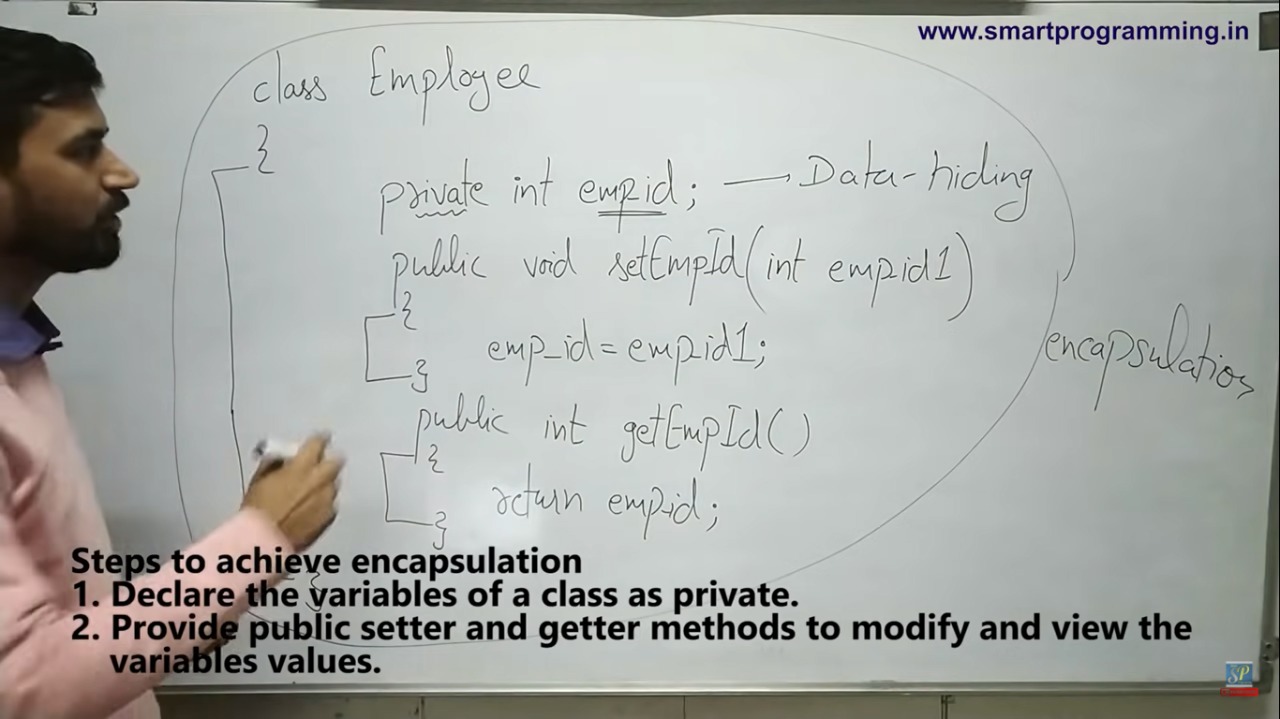 www.smartprogramming.in
class Employee
{
private int empid; — Data-hiding
public void setEmpId(int empid1)
{
emp_id = empid1;
}
encapsulation
public int getEmpId()
{
return empid;
}
}
Steps to achieve encapsulation
1. Declare the variables of a class as private.
2. Provide public setter and getter methods to modify and view the
variables values.
SP